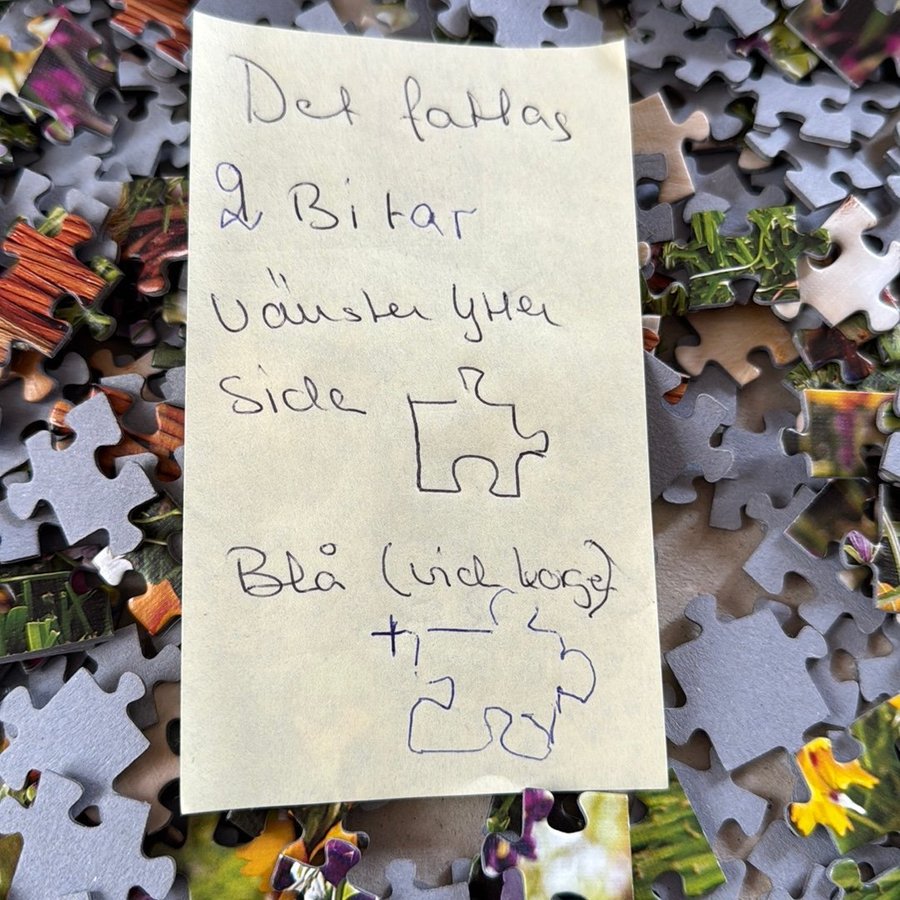 Det fattas
2 Bitar
vänster ytter
side
Blå (vid korge)
+